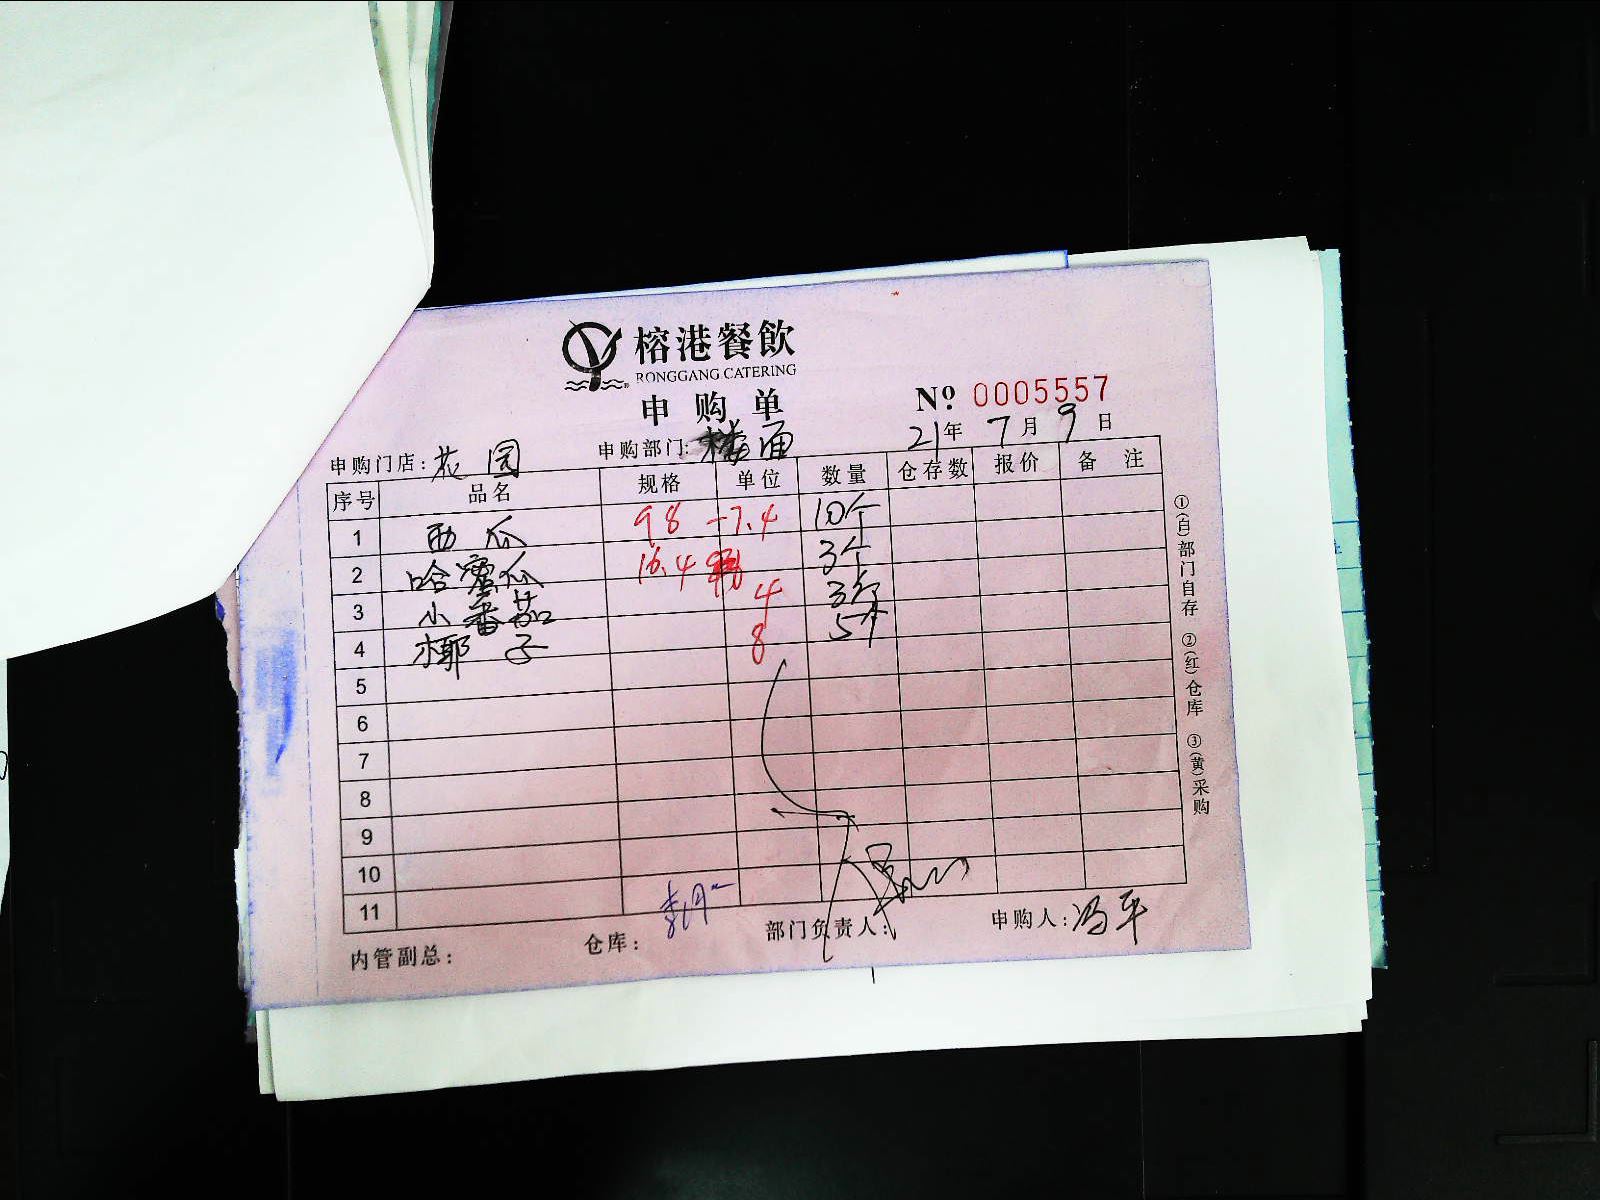 榕港餐飲
RONGGANG CATERING
申购单
№ 0005557
申购门店: 花园 申购部门: 楼面 21年 7月 9日
序号 品名 规格 单位 数量 仓存数 报价 备注
1 西瓜 98 -7.4 10个
2 哈蜜瓜 16.4 3个
3 小番茄 4 3斤
4 椰子 8 5个
5
6
7
8
9
10
11
内管副总: 仓库: 部门负责人: 申购人: 冯平
①(白)部门自存 ②(红)仓库 ③(黄)采购